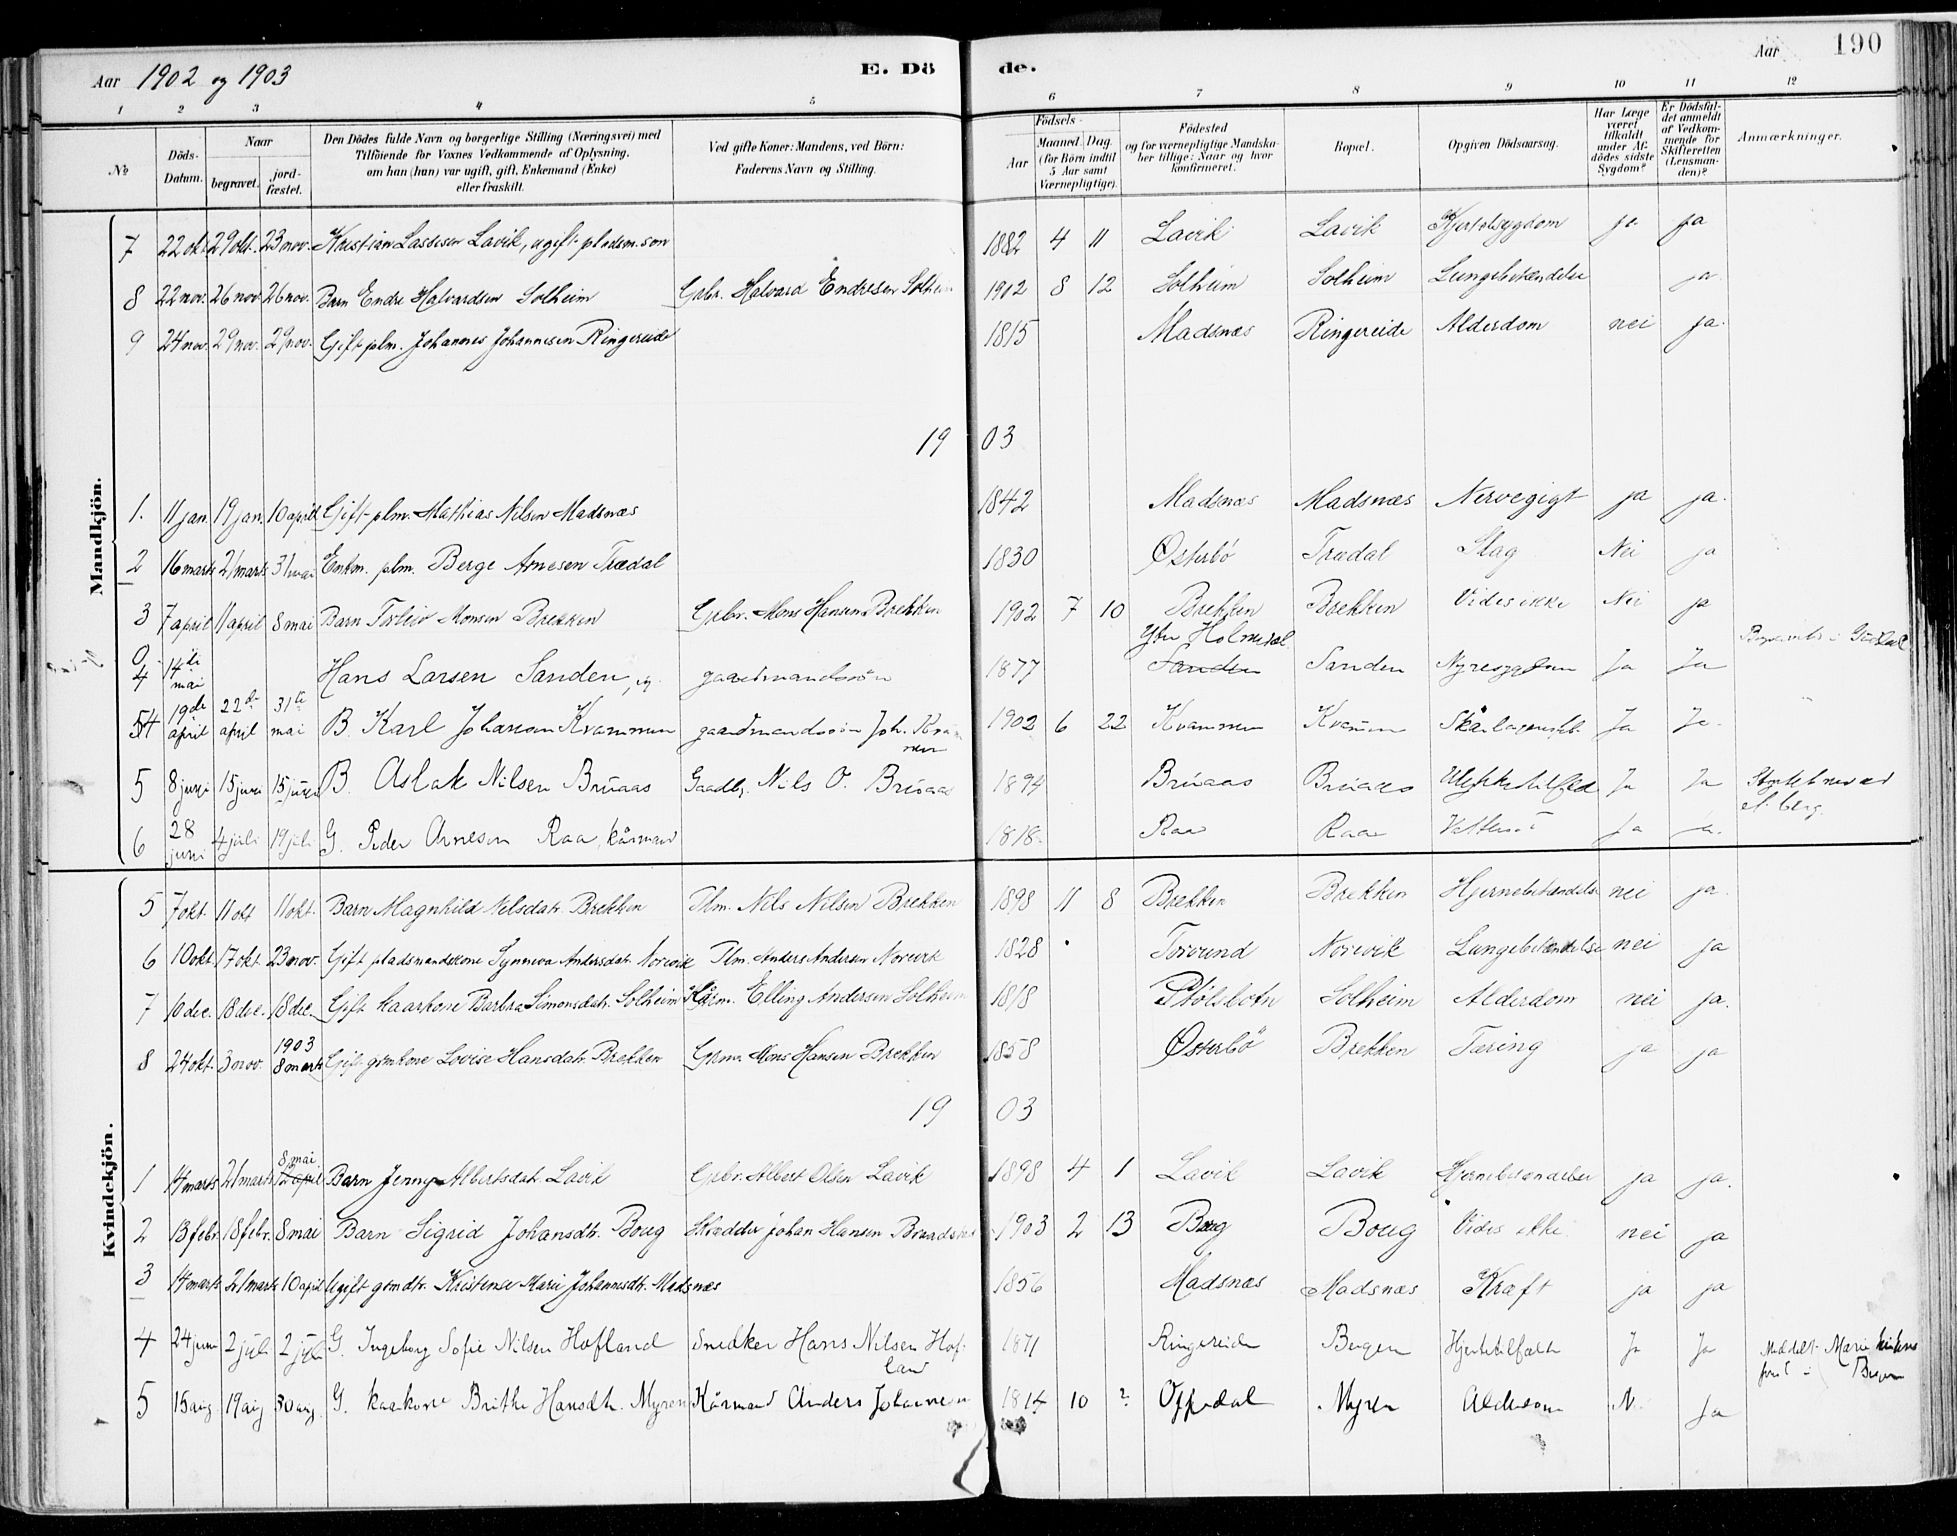 Aar 1902 og 1903 E. Dö de. Aar 190
1 2 3 4 5 6 7 8 9 10 11 12
No
Döds-Datum.
Naar
begravet.
jord-fæstet.
Den Dödes fulde Navn og borgerlige Stilling (Næringsvei) med
Tilföiende for Voxnes Vedkommende af Oplysning,
om han (hun) var ugift, gift, Enkemand (Enke)
eller fraskilt.
Ved gifte Koner: Mandens, ved Börn:
Faderens Navn og Stilling.
Födsels-
Aar
Maaned. Dag.
(for Börn indtil
5 Aar samt
Værnepligtige).
Födested
og for værnepligtige Mandska-
ber tillige: Naar og hvor
konfirmeret.
Bopæl.
Opgiven Dödsaarsag.
Har Læge
været
tilkaldt
under Af-
dödes sidste
Sygdom?
Er Dödsfal-
det anmeldt
af Vedkom-
mende for
Skifteretten
(Lensman-
den)?
Anmærkninger.
Mandkjön.
7 22 okt. 29 okt. 23 nov. Kristian Lassesen Lavik, ugift pladsm. son 1882 4 11 Lavik Lavik Kjertelsygdom ja ja
8 22 nov. 26 nov. 26 nov. Barn Endre Halvardsen Solheim Gbr. Halvard Endresen Solheim 1902 8 12 Solheim Solheim Lungebetændelse ja
9 24 nov. 29 nov. 29 nov. Gift plm. Johannes Johannesen Ringereide 1815 Madsnæs Ringereide Alderdom nei ja.
19 03
1. 11 jan. 19 jan. 10 april Gift plm. Mathias Nilsen Madsnæs 1842 Madsnæs Madsnæs Nervegigt ja ja.
2 16 marts 21 marts 31 mai Enkm. plm. Berge Arnesen Trædal 1830 Østerbö Trædal Slag Nei ja
3 7 april 11 april 8 mai Barn Torleiv Monsen Brekken Gbr. Mons Hansen Brekken 1902 7 10 Brekken Brekken Vides ikke Nei ja
0. 4 14de mai Hans Larsen Sanden, ug. gaardmandssön 1877 Ytre Holmedal Sanden Sanden Nyresygdom Ja Ja
54 19de april 22de april 31te mai B. Karl Johansen Kvammen gaardmandssön Joh. Kvammen 1902 6 22 Kvammen Kvammen Ja Ja
5 8 juni 15 juni 15 juni B. Aslak Nilsen Brüaas Gaardbr. Nils O. Brüaas 1894 Brüaas Brüaas Ulykkestilfæld Ja Ja
6 28 juni 4 juli 19 juli G. Peder Arnesen Raa, kårmand 1818 Raa Raa Vattersot Ja Ja.
Kvindekjön.
5 7 okt. 11 okt 11 okt. Barn Magnhild Nilsdatr. Brekken Plm. Nils Nilsen Brekken 1898 11 8 Brekken Brekken Hjernebetændelse nei ja.
6 10 okt. 17 okt. 23 nov. Gift pladsmandskone Synneva Andersdatr. Norevik Plm. Anders Andersen Norevik 1828 Torvund Norevik Lungebetændelse nei ja
7 10 dec. 18 dec. 18 dec. Gift kaarkone Barbra Simonsdatr. Solheim Kårm. Elling Andersen Solheim 1818 Stölsbotn Solheim Alderdom nei ja.
8 24 okt. 3 nov. 1903 8 marts Gift gmkone Lovise Hansdatr. Brekken Gbm. Mons Hansen Brekken 1858 Østerbö Brekken Tæring ja ja
19 03
1 14 marts 21 marts 8 mai 12 april Barn Jenny Albertsdatr. Lavik Gbr. Albert Olsen Lavik 1898 4 1 Lavik Lavik Hjernebetændelse ja ja.
2 13 febr. 18 febr. 8 mai Barn Sigrid Johansdtr. Boug Skrædder Johan Hansen 1903 2 13 Boug Boug Vides ikke nei ja
3 14 marts 21 marts 10 april Ugift gmdtr. Kristense Marie Johannesdtr. Madsnæs 1856 Madsnæs Madsnæs Kræft ja ja
4 24 juni 2 juli 2 juli G. Ingeborg Sofie Nilsen Hofland Snedker Hans Nilsen Hofland 1871 Ringereide Bugen Hjertetilfælde Ja Ja
5 15 aug 19 aug 30 aug. G. kaarkone Brithe Hansdtr. Myren Kårmand Anders Johannesen 1814 10 ? Oppedal Myren Alderdom N. Ja